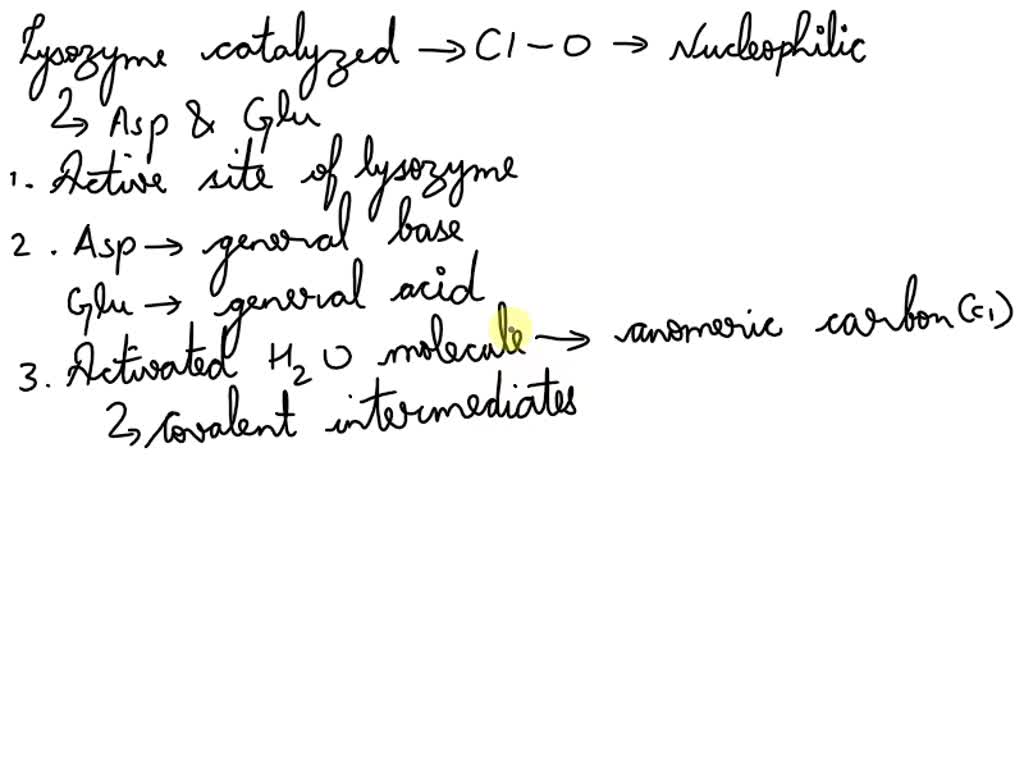 Lysozyme catalyzed → C1 – O → Nucleophilic
↳ Asp & Glu
1. Active site of lysozyme
2. Asp → general base
Glu → general acid
3. Activated H₂O molecule → anomeric carbon (C1)
↳ covalent intermediates